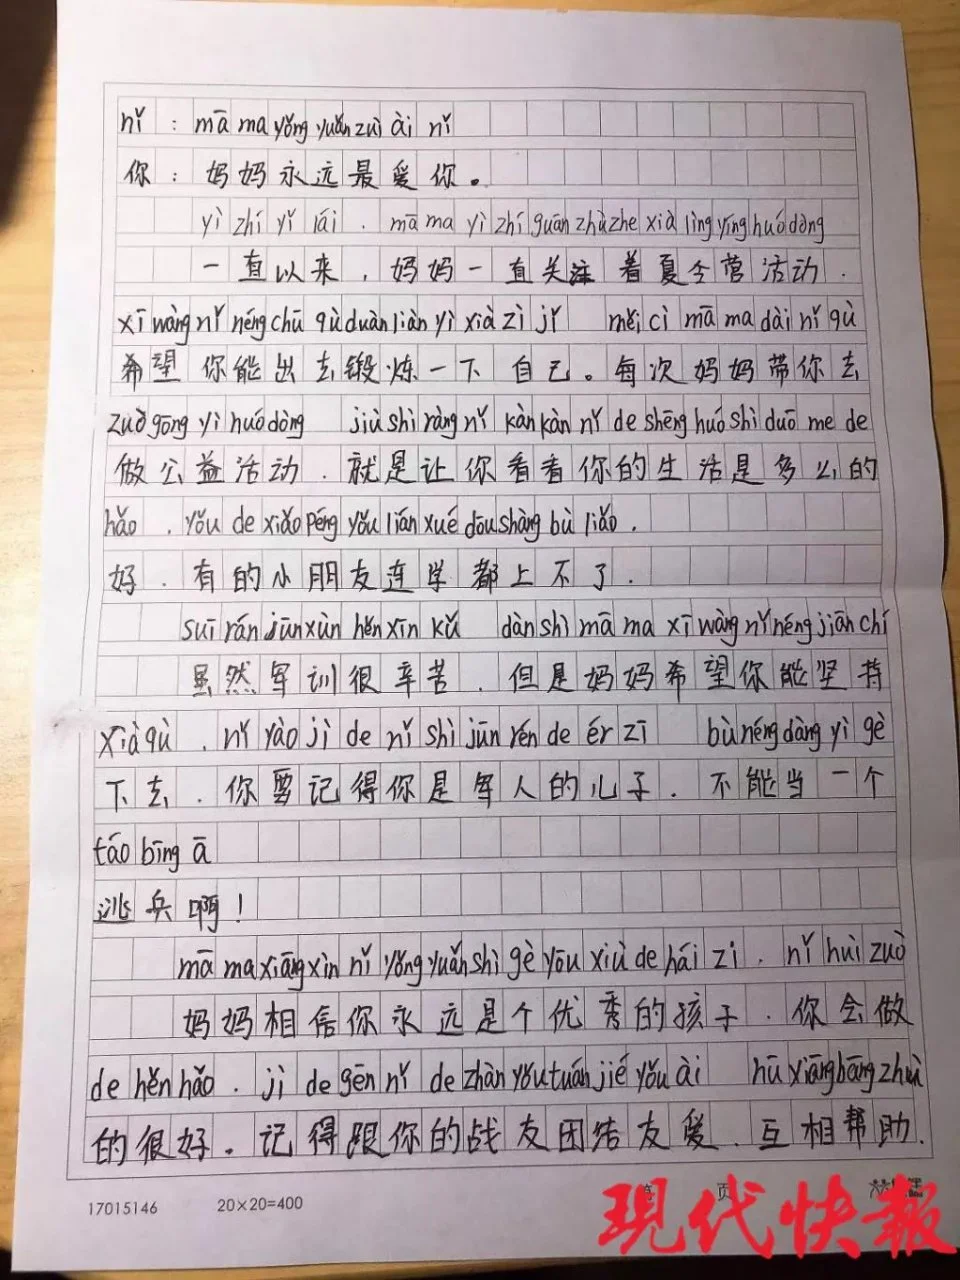 nǐ : mā ma yǒng yuǎn zuì ài nǐ
你：妈妈永远最爱你。
yì zhí yǐ lái . mā ma yì zhí guān zhù zhe xià lìng yíng huó dòng
一直以来，妈妈一直关注着夏令营活动.
xī wàng nǐ néng chū qù duàn liàn yì xià zì jǐ měi cì mā ma dài nǐ qù
希望你能出去锻炼一下自己。每次妈妈带你去
zuò gōng yì huó dòng jiù shì ràng nǐ kàn kàn nǐ de shēng huó shì duō me de
做公益活动.就是让你看看你的生活是多么的
hǎo . yǒu de xiǎo péng yǒu lián xué dōu shàng bù liǎo.
好.有的小朋友连学都上不了.
suī rán jūn xùn hěn xīn kǔ dàn shì mā ma xī wàng nǐ néng jiān chí
虽然军训很辛苦.但是妈妈希望你能坚持
xià qù . nǐ yào jì de nǐ shì jūn rén de ér zi bù néng dàng yì gè
下去.你要记得你是军人的儿子.不能当一个
táo bīng ā
逃兵啊！
mā ma xiāng xìn nǐ yǒng yuǎn shì gè yōu xiù de hái zi . nǐ huì zuò
妈妈相信你永远是个优秀的孩子.你会做
de hěn hǎo . jì de gēn nǐ de zhàn yǒu tuán jié yǒu ài hū xiāng bāng zhù
的很好.记得跟你的战友团结友爱.互相帮助.
17015146 20×20=400 页
现代快報